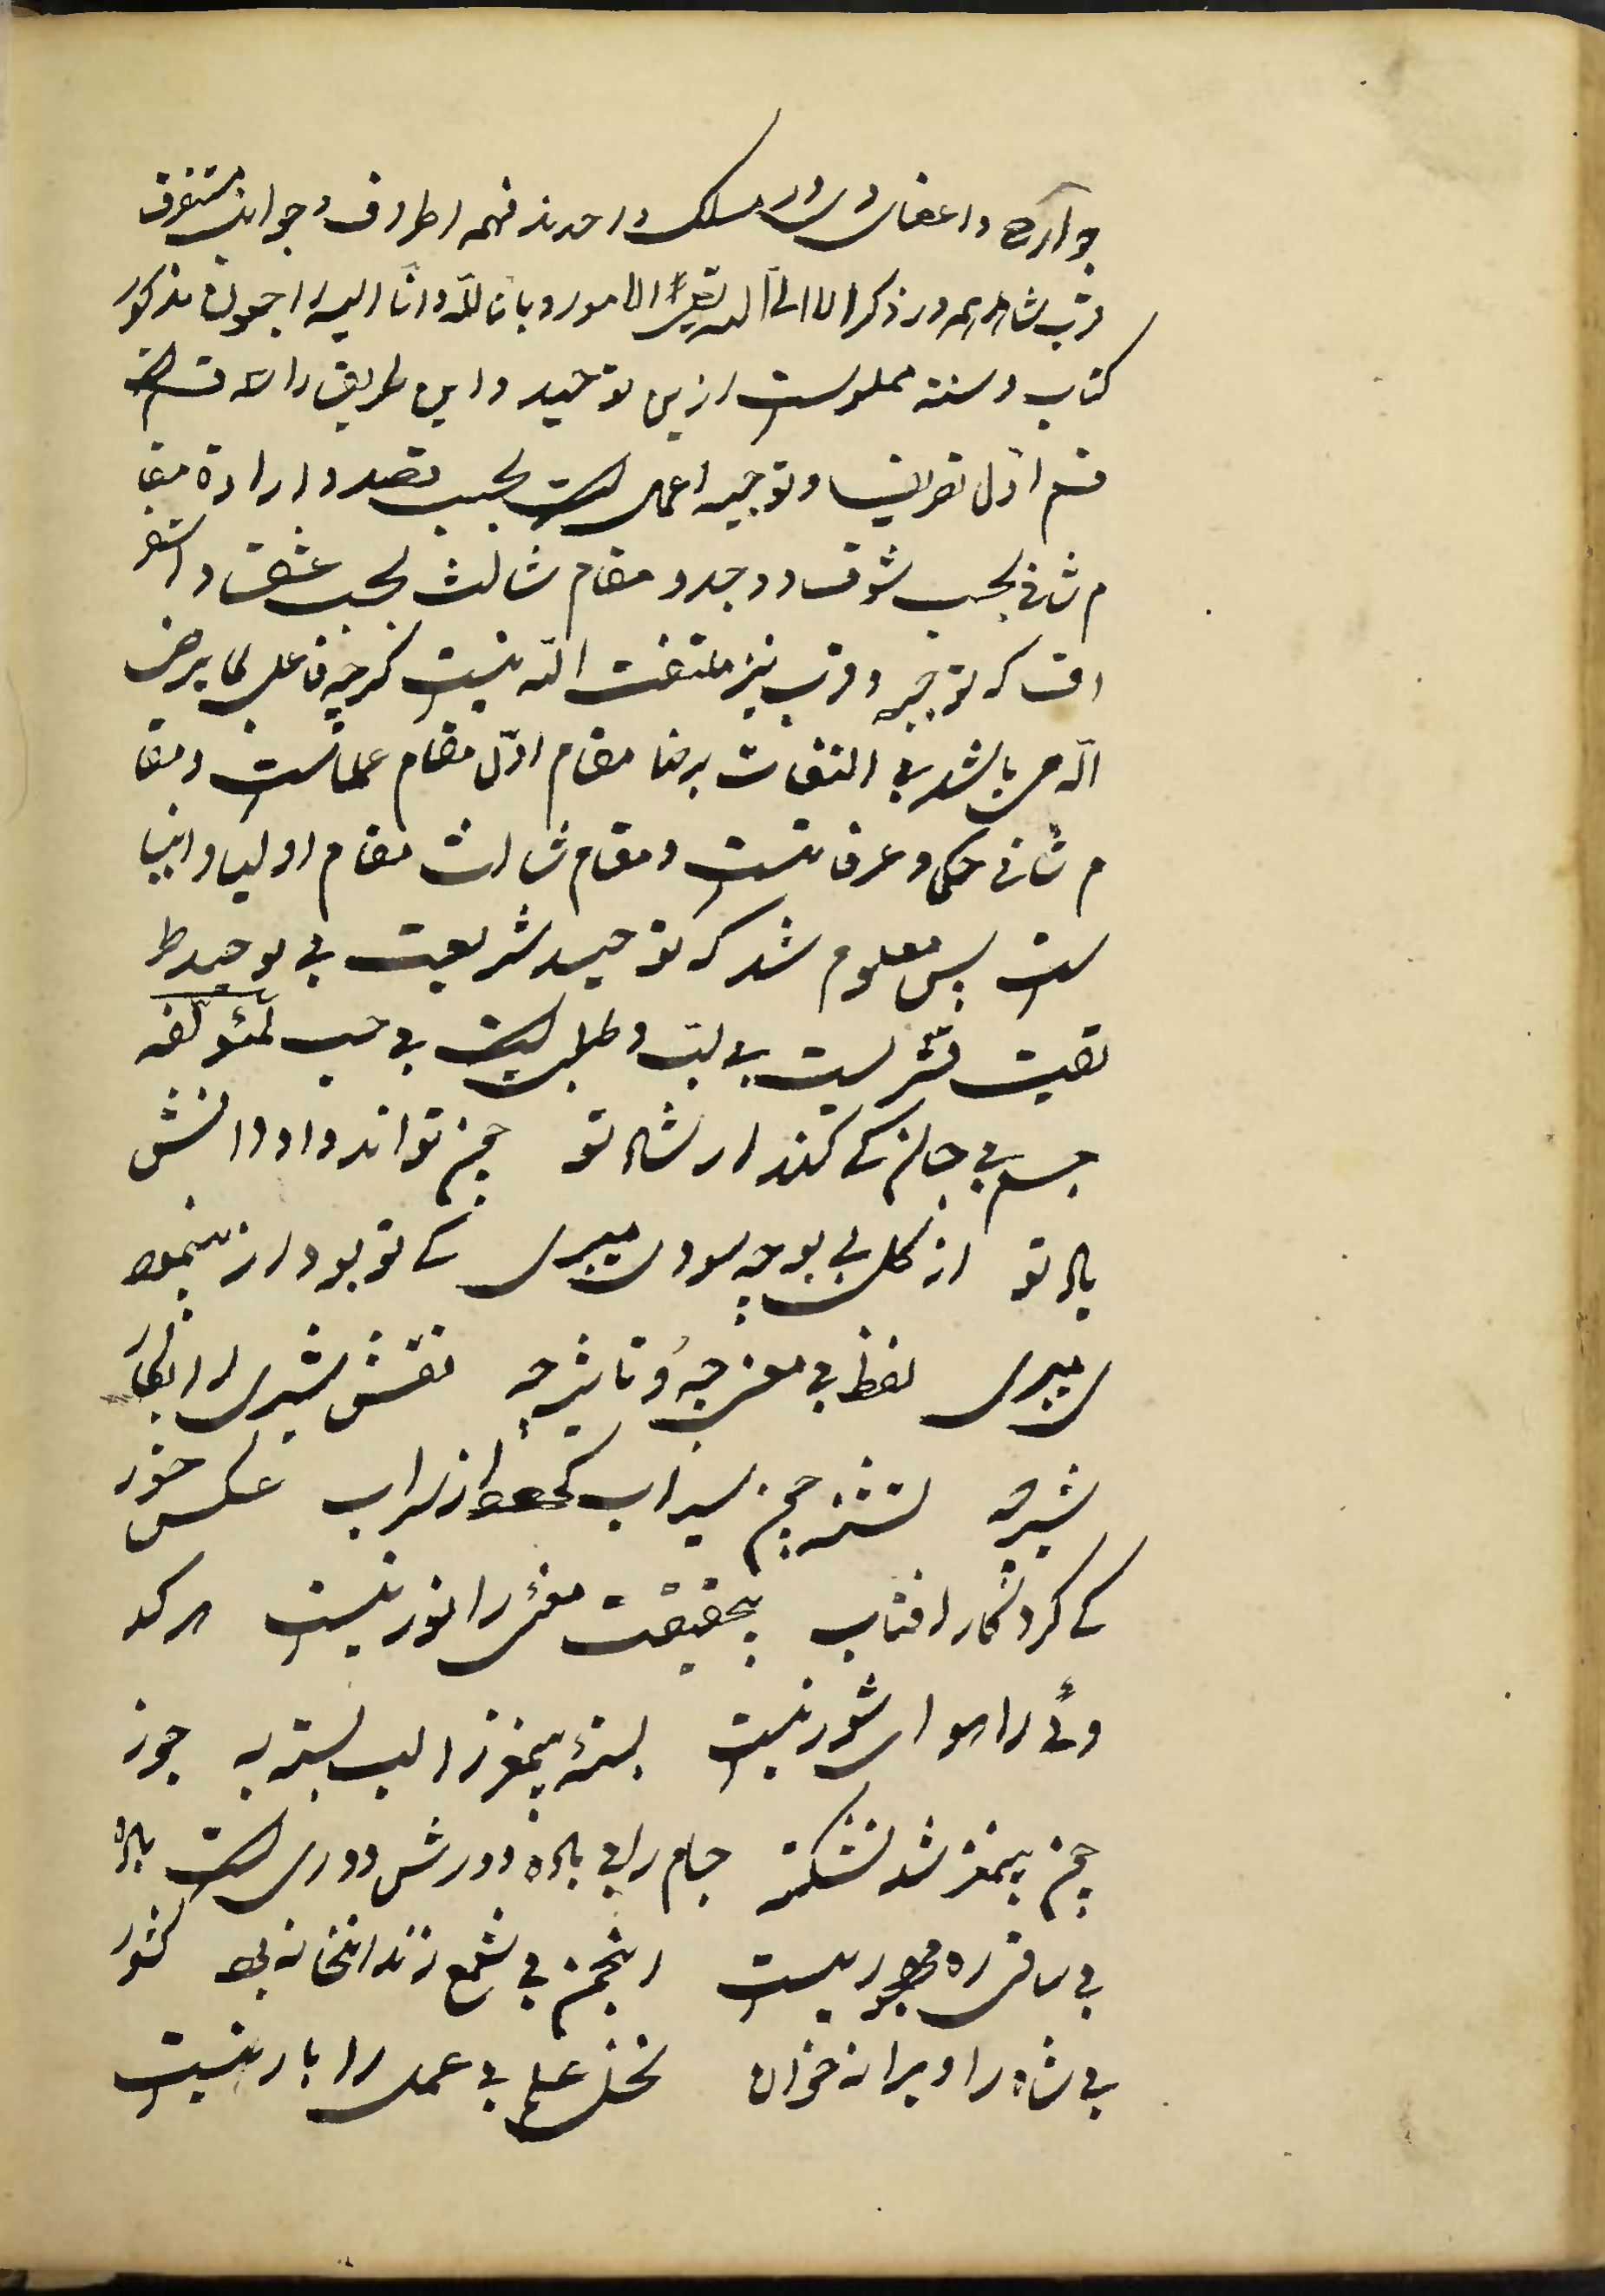 جوارح و اعضای و در مسلک واحدند فهمه اطراف و جوانب متفرق
قرب شاهراهیه در ذکر الا الی الله تصیر الامور و بانا لله و انا الیه راجعون مذکور
کتاب و سنة مملوست ازین توحید و این طریق را سه قسم
قسم اول تعریف و توجیه اعمال است بحسب قصد و ارادة مقا
م ثانی بحسب شوق و وجد و مقام ثالث بحسب عشق و استغر
اق که توجه و قرب نیز ملتفت الیه نیست کرچه فاعل لما یرضی
الله می باشد بی التفات برضا مقام اول مقام علماست و مقا
م ثانی حکما و عرفاست و مقام ثالث مقام اولیا و انبیا
ست پس معلوم شد که توحید شریعت بی توحید طر
یقت قشریست بی لب و طلبیست بی حب لمؤلفه
جسم بی جان کی کند ارشاد تو چون تواند داد دانش
یاد تو از کل بی بو چه سودی میبری کی تو بود از نیم‌سو
ی میبری لفظ بی معنی چه و تاثیر چه نقش شیری را بکار
شیر چه تشنه چون سیراب کردد از سراب عکس خور
کی کرد کار افتاب بیحقیقت معنی را نور نیست هر کد
وئی را هوای شور نیست پستهٔ بیمغز را لب بسته به جوز
چون بیمغز شد نشکسته جام را بی باده دورش دوری است باده
بی ساقی ره مهجوریست انجمن بی شمع زندانخانه کشور
بی شاه را ویرانه خوان نخل علم بی عمل را بار نیست